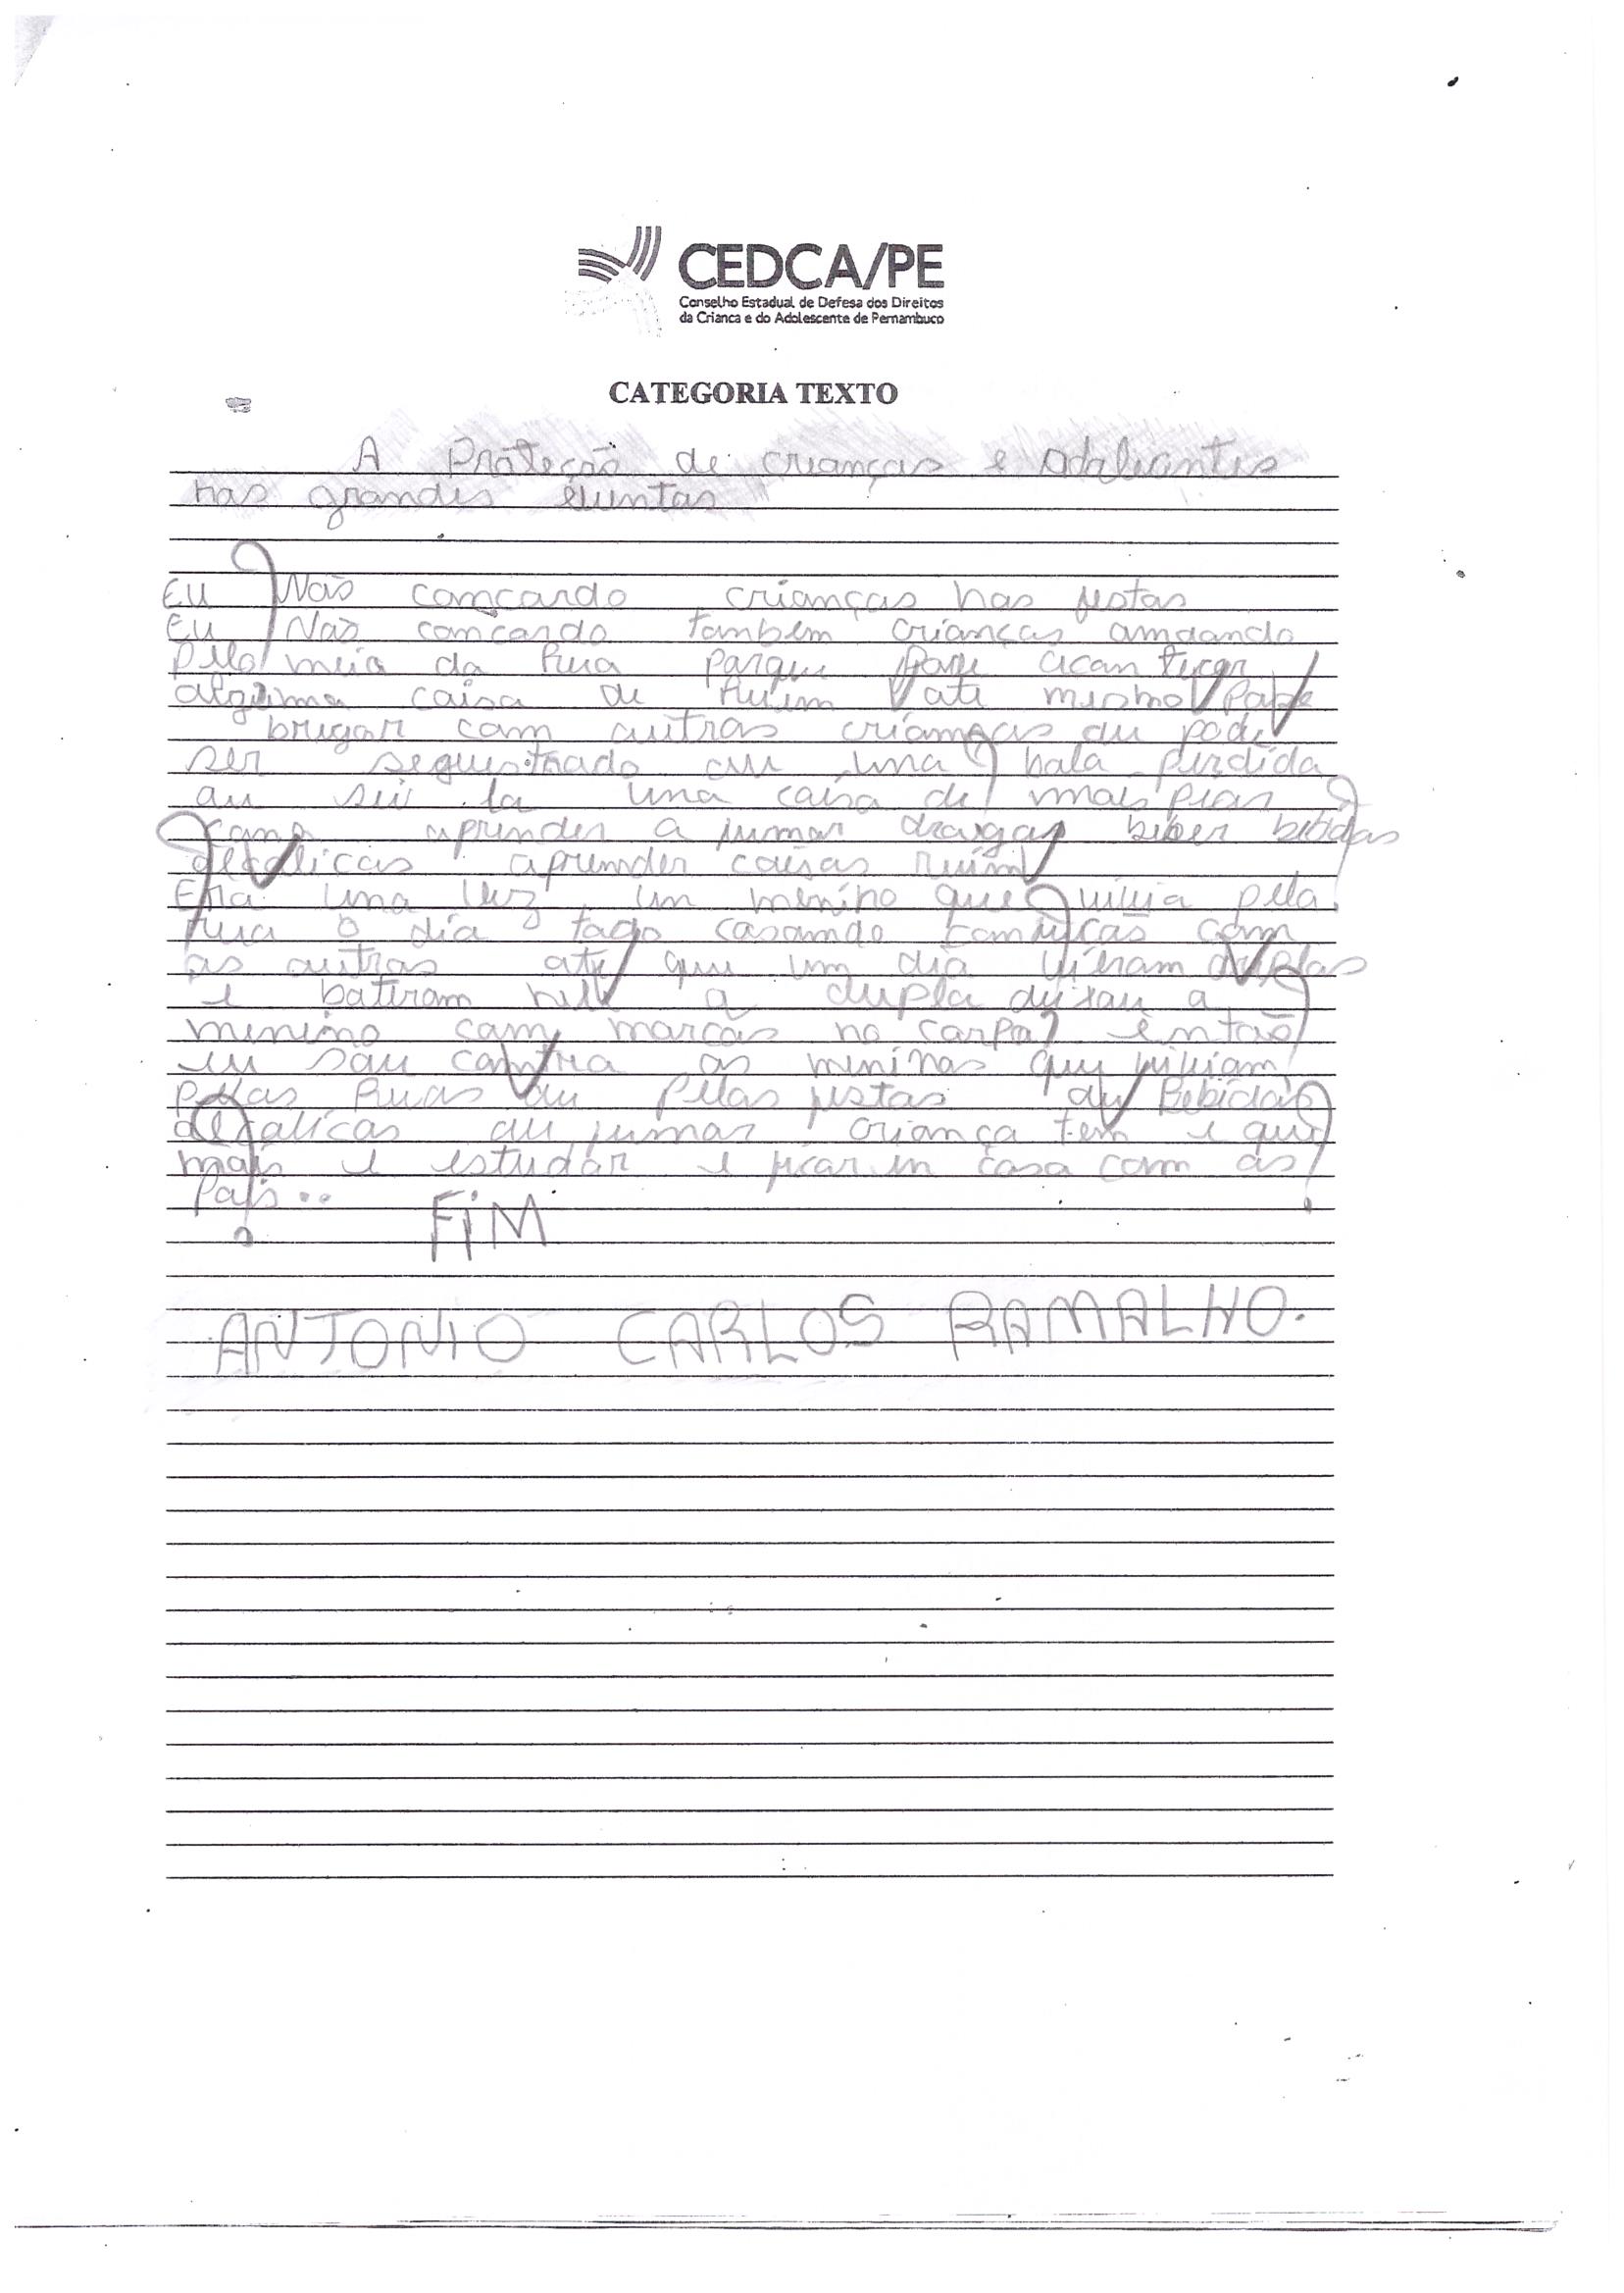 CEDCA/PE
Conselho Estadual de Defesa dos Direitos
da Crianca e do Adolescente de Pernambuco
CATEGORIA TEXTO
A Proteção de crianças e adolecentes
nas grandes eventos
EU Não concordo crianças nas festas
EU Não concordo tanbem crianças amdando
pelo meio da Rua porque pode acontecer
alguma coisa de Ruim ate mesmo
brigar com outras crianças ou pode
ser sequestrado ou uma bala perdida
ou sei la uma coisa de mais pior
como aprender a fumar drogas beber bebidas
aprender coisas ruim
Era uma vez um menino que vivia pela
rua o dia todo com
os outros ate que um dia vieram
e bateram nele a dupla deixou o
menino com marcas no corpo então
eu sou contra os meninos que viviam
pelas Ruas ou pelas festas de Bebidas
ou fumar criança tem e que
mais e estudar e ficar in casa com os
Pais..
FiM
ANTONIO CARLOS RAMALHO.